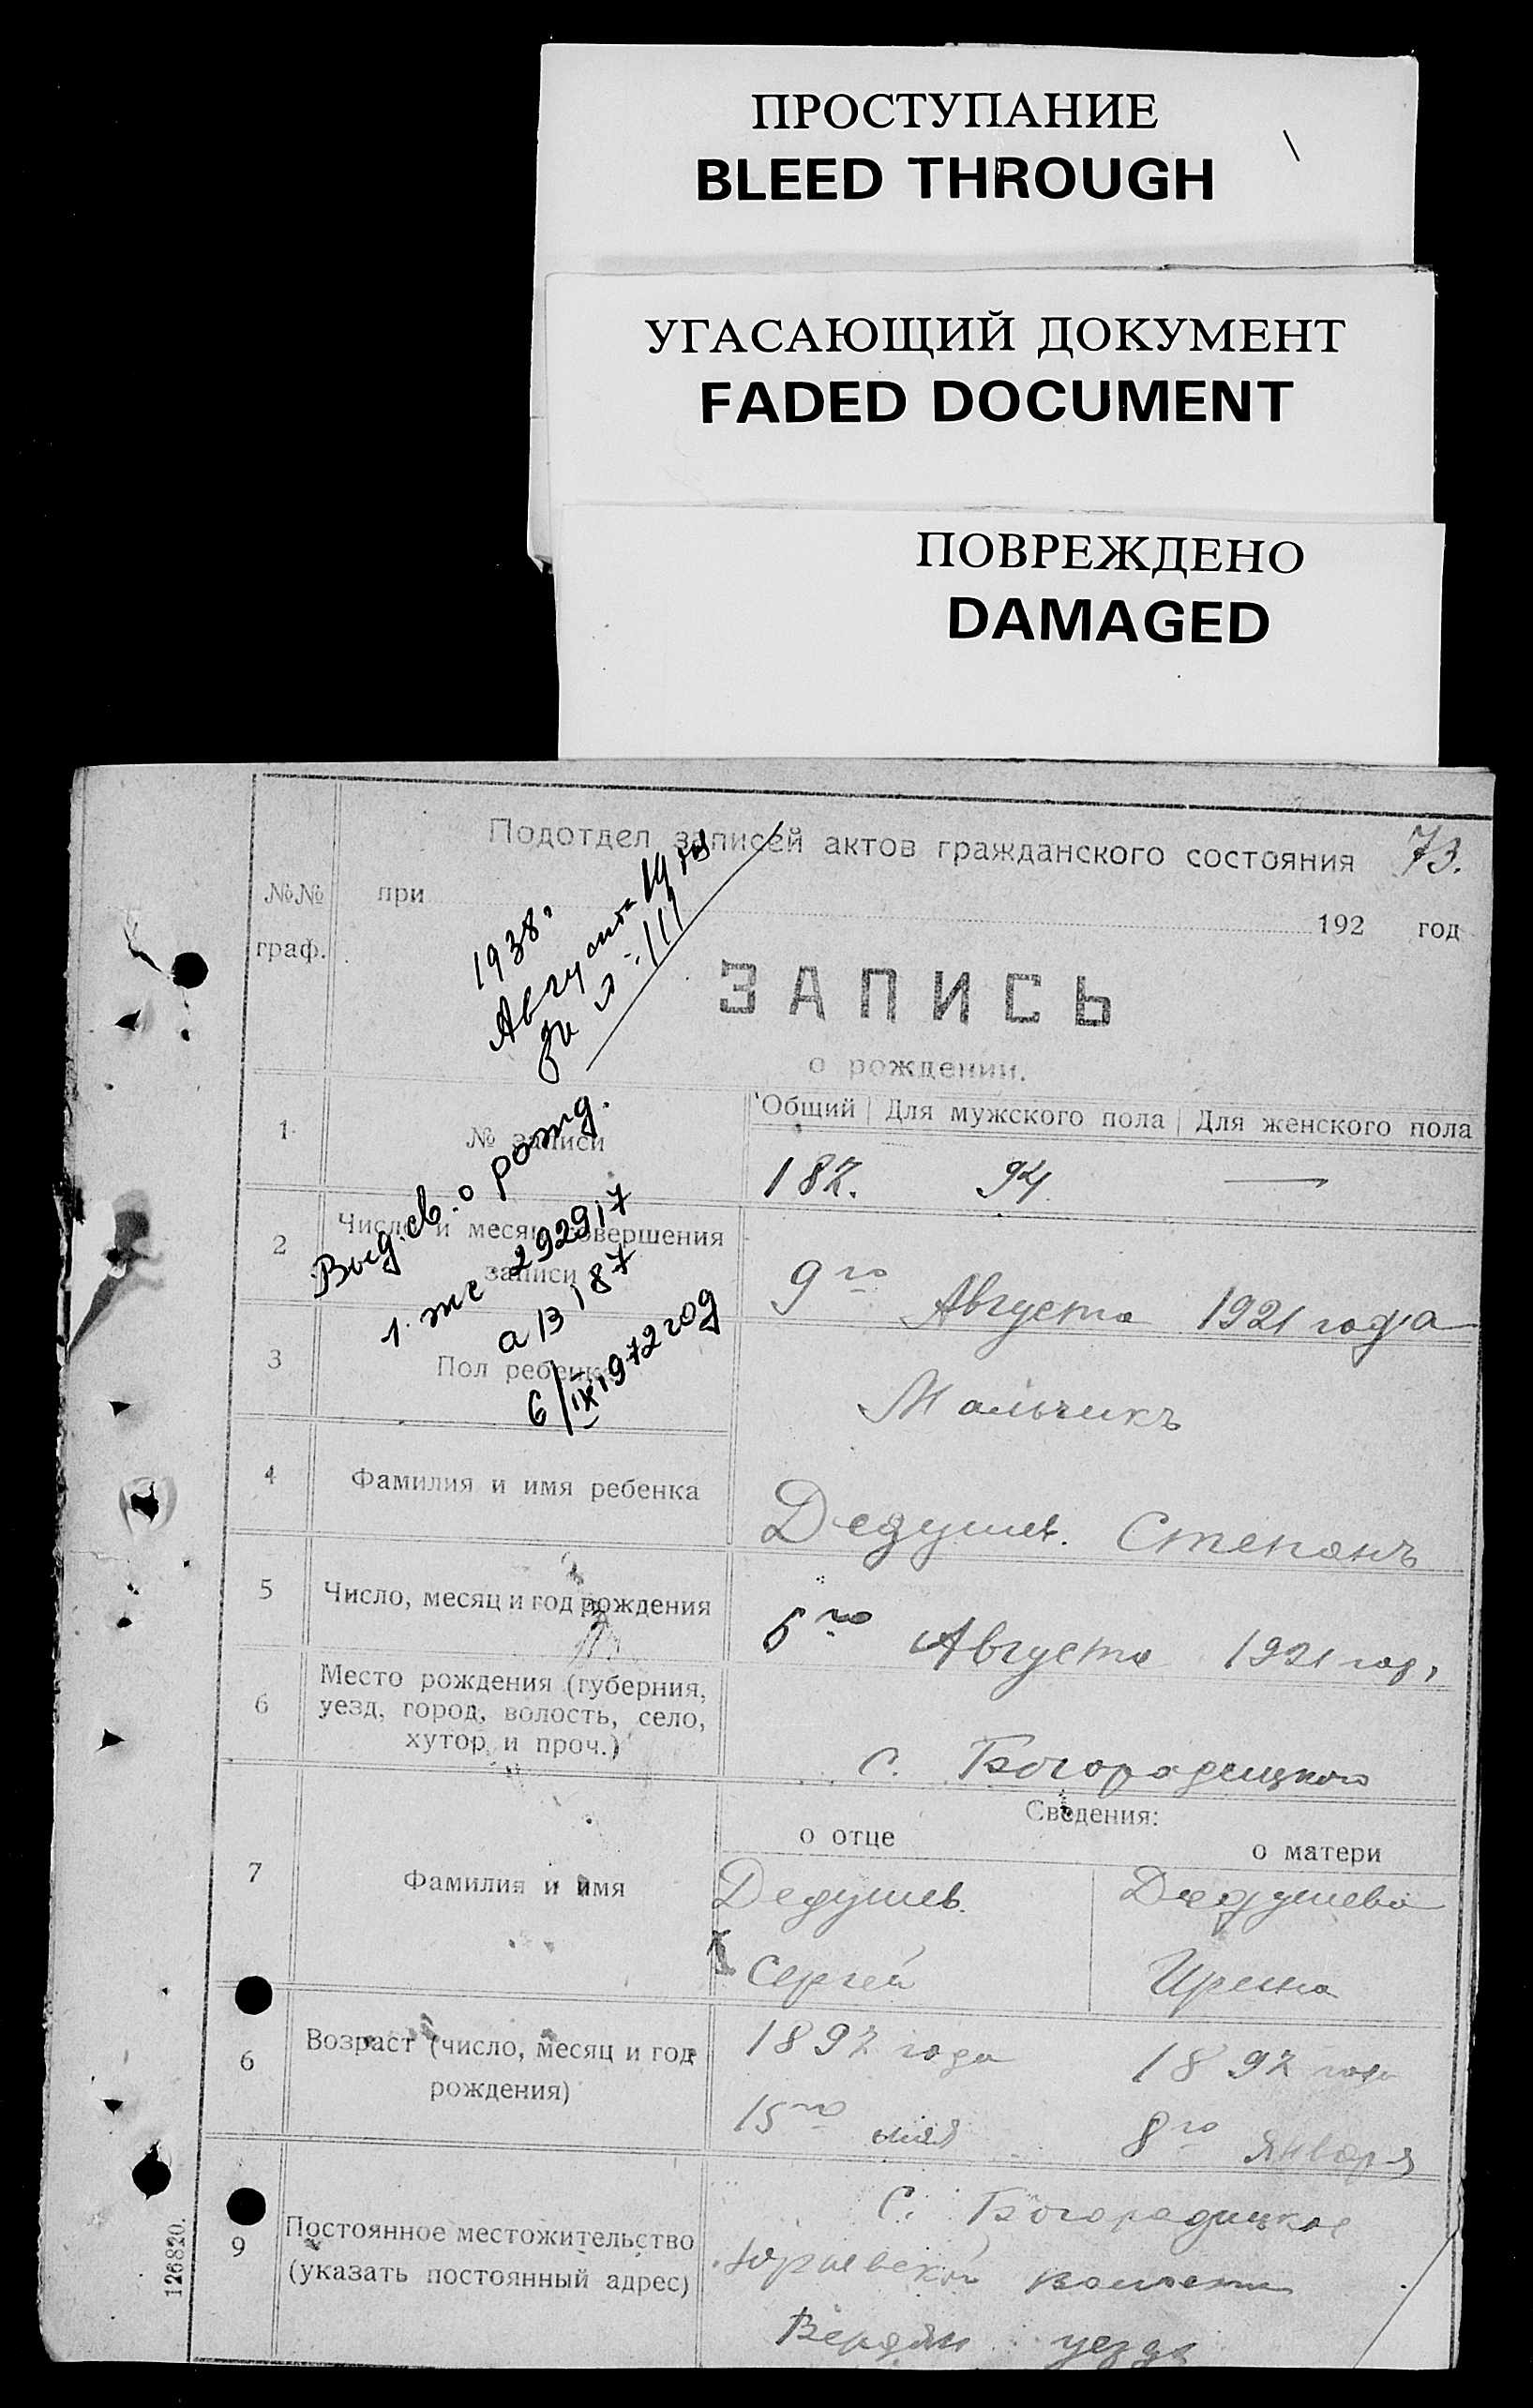 ПРОСТУПАНИЕ
BLEED THROUGH
УГАСАЮЩИЙ ДОКУМЕНТ
FADED DOCUMENT
ПОВРЕЖДЕНО
DAMAGED
Подотдел записей актов гражданского состояния 73.
№№ граф. при 192 год
1938г
Августа 14
за №
ЗАПИСЬ
о рождении.
Общий Для мужского пола Для женского пола
1 № записи 182. 94. —
Выд. св. о рожд.
1. же 292917
1972 год
2 Число и месяц совершения
записи
9го Августа 1921 года
3 Пол ребенка Мальчикъ
4 Фамилия и имя ребенка Дедушев. Степанъ
5 Число, месяц и год рождения 5го Августа 1921 год,
6 Место рождения (губерния,
уезд, город, волость, село,
хутор и проч.)
с. Богородицкого
Сведения:
о отце о матери
7 Фамилия и имя Дедушев. Дедушева
Сергей Ирина
6 Возраст (число, месяц и год
рождения)
1892 года 1892 года
15го мая 8го января
9 Постоянное местожительство
(указать постоянный адрес)
С. Богородицкое
Юрьевской волости
Бердян уезда
126820.